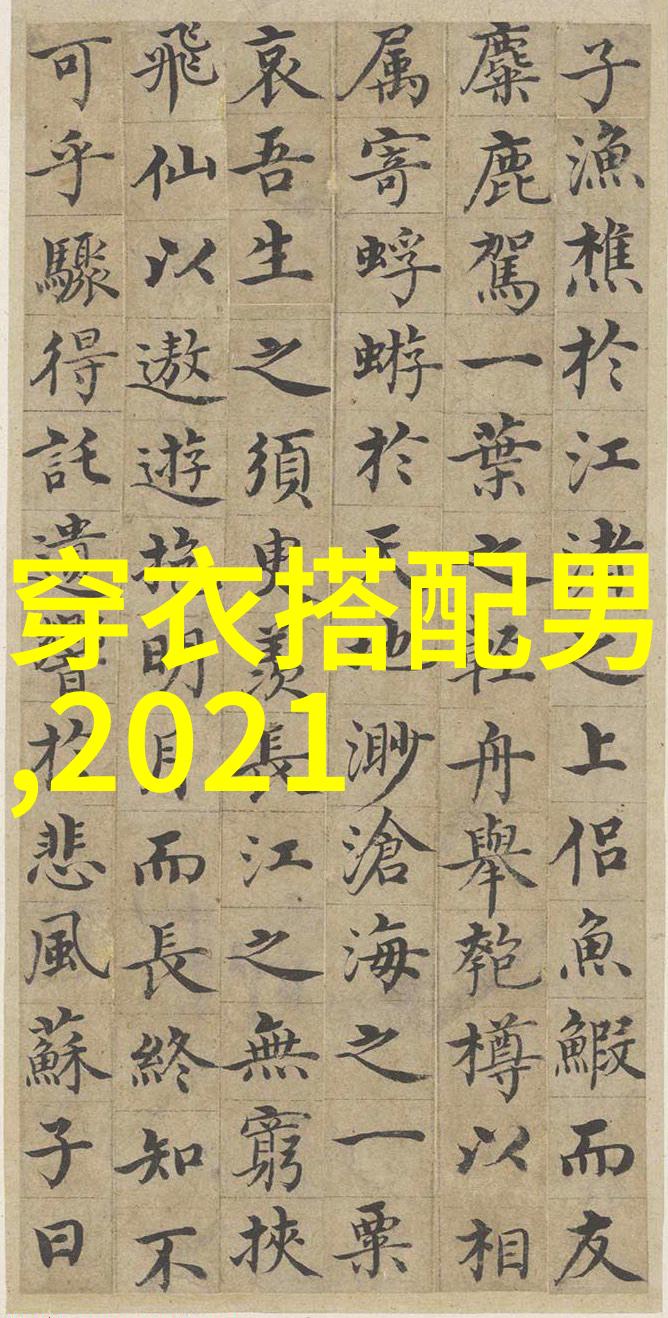 子漁樵於江渚之上侣魚鰕而友
麋鹿駕一葉之輕舟舉匏樽以相
属寄蜉蝣於天地渺滄海之一粟
哀吾生之須臾羨長江之無窮挾
飛仙以遨遊抱明月而長終知不
可乎驟得託遺響於悲風蘇子曰
穿衣搭配男
,2021